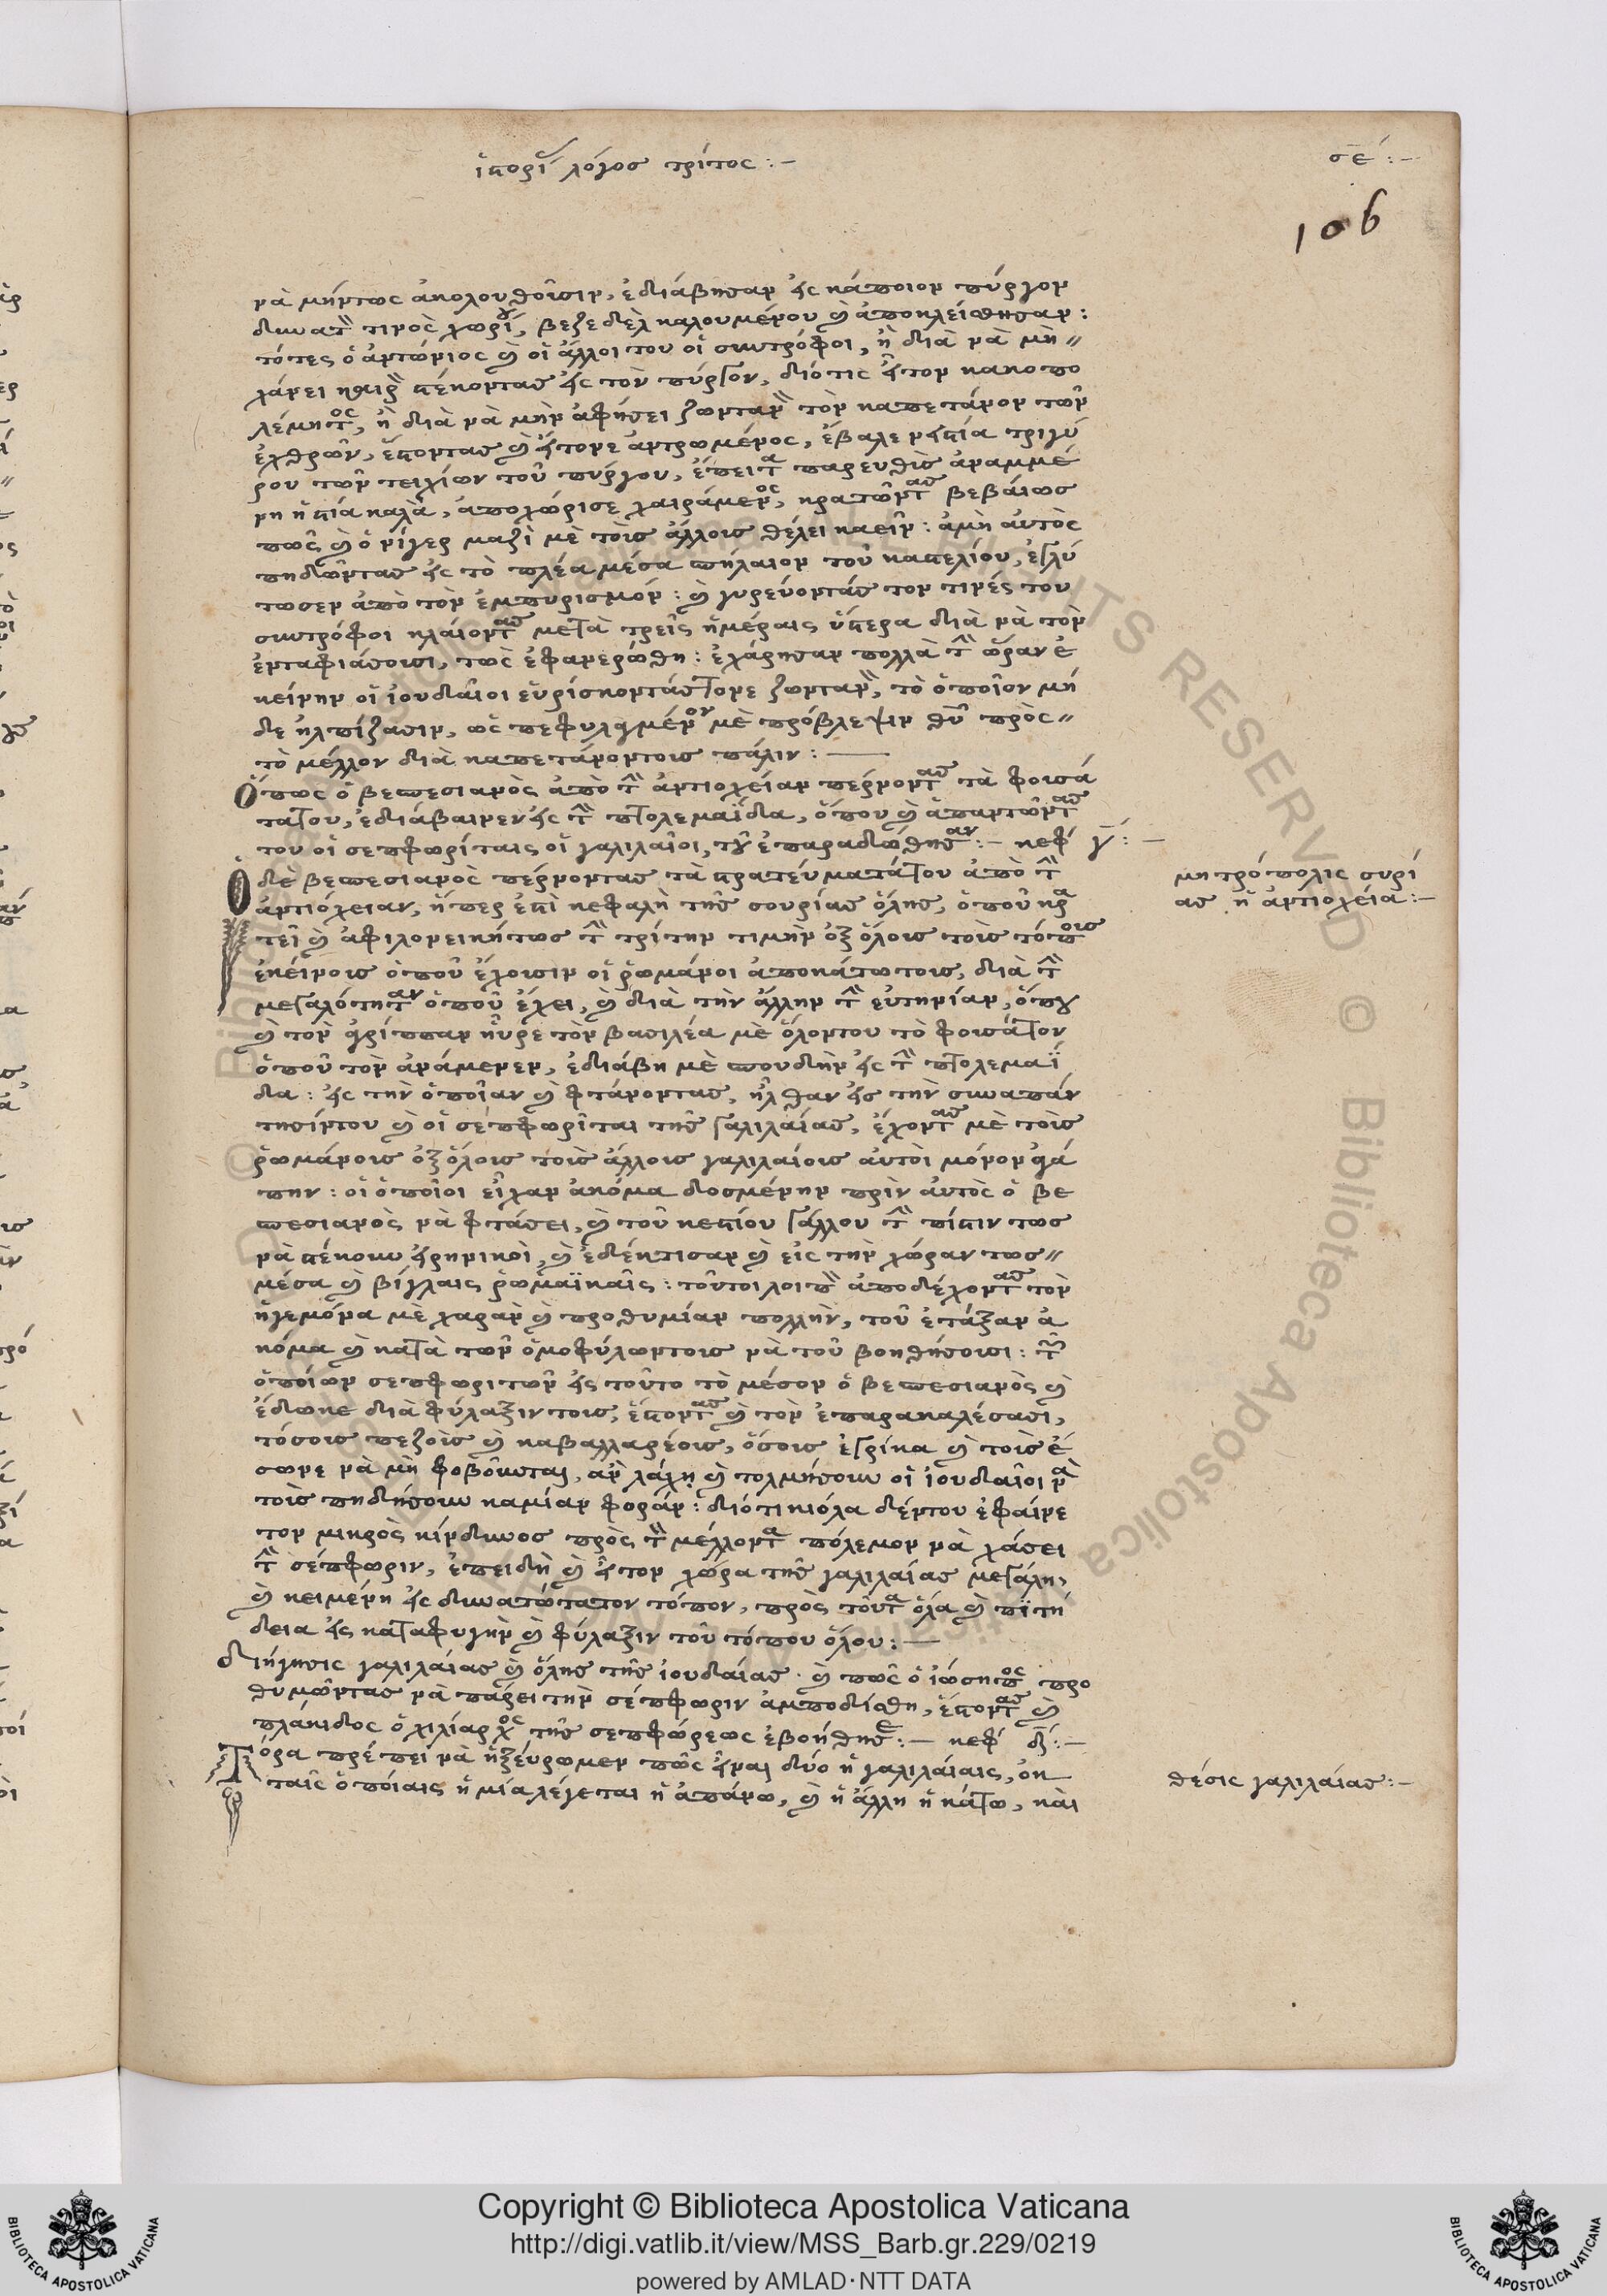 ἱστορί λόγος τρίτος :—
σε΄ :—
106
νὰ μήντως ἀκολουθοῦσιν, ἐδιάβησαν εἰς κάποιον πύργον
δυνατὸν τινὸς χωρίου, βεζεδὲλ καλουμένου καὶ ἀποκλείσθησαν :
τότες ὁ ἀντώνιος καὶ οἱ ἄλλοι του οἱ συντρόφοι, ἢ διὰ νὰ μὴ〃
χάνει καιρὸν στέκοντας εἰς τὸν πύργον, διότις ἦτον κακοπο
λέμητος, ἢ διὰ νὰ μὴν ἀφήσει ζωντανὸν τὸν καπετάνον τῶν
ἐχθρῶν, ἔστοντας καὶ ἤτονε ἀντρωμένος, ἔβαλε νἱστία τριγύ
ρου τῶν τειχίων τοῦ πύργου, ἔπειτα παρευθὺς ἀναμμέ
νη ἡ στιά καλὰ, ἀποχώρισε χαιράμενος, κρατῶντας βεβάιως
πῶς καὶ ὁ νίγερ μαζὶ μὲ τοὺς ἄλλους θέλει καεῖν : ἀμὴ ἀυτὸς
πηδῶντας εἰς τὸ πλέα μέσα σπήλαιον τοῦ καστελίου, ἐγλύ
τωσεν ἀπὸ τὸν ἐμπυρισμόν : καὶ γυρεύοντάς τον τινές του
συντρόφοι κλάιοντας μετὰ τρεῖς ἡμέραις ὕστερα διὰ νὰ τὸν
ἐνταφιάσουσι, τως ἐφανερώθη : ἐχάρησαν πολλὰ τὴν ὥραν ἐ
κείνην οἱ ἰουδαῖοι εὑρίσκοντάς τονε ζωντανὸν, τὸ ὁποῖον μή
δε ἠλπίζασιν, ὡς πεφυλαγμένον μὲ πρόβλεψιν θεοῦ πρὸς〃
τὸ μέλλον διὰ καπετάνοντους πάλιν :——
Ὅπως ὁ βεσπεσιανὸς ἀπὸ τὴν ἀντιοχείαν πέρνοντας τὰ φουσά
τατου, ἐδιάβαινεν εἰς τὴν πτολεμαΐδα, ὅπου καὶ ἀπαντῶντας
του οἱ σεπφωρίταις οἱ γαλιλαῖοι, τοῦ ἐπαραδώθησαν :— κεφ γ΄ :—
Ὁ δὲ βεσπεσιανὸς πέρνοντας τὰ στρατεύματάτου ἀπὸ τὴν
ἀντιόχειαν, ἥπερ ἐστὶ κεφαλὴ τῆς συρίας ὅλης, ὁποῦ κρα
τεῖ καὶ ἀφιλονεικήτως τὴν τρίτην τιμὴν ὀξ ὅλους τοὺς τόπους
ἐκείνους ὁποῦ ἔχουσιν οἱ ῥωμάνοι ἀποκάτωτους, διὰ τὴν
μεγαλότηταν ὁποῦ ἔχει, καὶ διὰ τὴν ἄλλην τὴν εὐτηνίαν, ὅπου
καὶ τὸν ἀγρίππαν ηὗρε τὸν βασιλέα μὲ ὅλοντου τὸ φουσάτον
ὁποῦ τὸν ἀνάμενεν, ἐδιάβη μὲ σπουδὴν εἰς τὴν πτολεμαΐ
δα : εἰς τὴν ὁποῖαν καὶ φτάνοντας, ἦλθαν εἰς τὴν συναπάν
τησίντου καὶ οἱ σεπφωρῖται τῆς γαλιλαίας, ἔχοντας μὲ τοὺς
ῥωμάνους ὀξ ὅλους τοὺς ἄλλους γαλιλαίους ἀυτοὶ μόνον ἀγά
πην : οἱ ὁποῖοι εἶχαν ἀκόμα δοσμένην πρὶν ἀυτὸς ὁ βε
σπεσιανὸς νὰ φτάσει, καὶ τοῦ κεστίου γάλλου τὴν πίστιν τως
νὰ στέκουν εἰρηνικοὶ, καὶ ἐδέκτισαν καὶ εἰς τὴν χώραν τως〃
μέσα καὶ βίγλαις ῥωμαϊκαῖς : τοῦτοι λοιπὸν ἀποδέχοντας τὸν
ἡγεμόνα μὲ χαρὰν καὶ προθυμίαν πολλὴν, τοῦ ἐτάξαν ἀ
κόμα καὶ κατὰ τῶν ὁμοφύλωντους νὰ τοῦ βοηθήσουσι : τῶν
ὁποίων σεπφωριτῶν εἰς τοῦτο τὸ μέσον ὁ βεσπεσιανὸς καὶ
ἔδωκε διὰ φύλαξιν τους, ἔστοντας καὶ τὸν ἐπαρακαλέσασι,
τόσους πεζοὺς καὶ καβαλλαρέους, ὅσους ἐγρίκα καὶ τοὺς ἐ
σωνε νὰ μὴ φοβοῦνται, ἀν λάχῃ καὶ τολμήσουν οἱ ἰουδαῖοι νὰ
τοὺς πηδήσουν καμίαν φοράν : διότι κιόλα δέντου ἐφαίνε
τον μικρὸς κίνδυνος πρὸς τὸν μέλλοντα πόλεμον νὰ χάσει
τὴν σέπφωριν, ἐπειδὴ καὶ ἦτον χώρα τῆς γαλιλαίας μεγάλη,
καὶ κειμένη εἰς δυνατώτατον τόπον, πρὸς τοῦτα ὅλα καὶ πϊτή
δεια εἰς καταφυγὴν καὶ φύλαξιν τοῦ τόπου ὅλου :—
Διήγησις γαλιλαίας καὶ ὅλης τῆς ἰουδαίας · καὶ πῶς ὁ ἰώσηπος προ
θυμῶντας νὰ πάρει τὴν σέπφωριν ἀμποδίσθη, ἔστοντας καὶ
πλάκιδος ὁ χιλίαρχος τῆς σεπφώρεως ἐβοήθησε :— κεφ δ΄ :—
Τόρα πρέπει νὰ ἠξεύρωμεν πῶς εἶναι δύο ἡ γαλιλάιαις, ὀκ
ταῖς ὁποίαις ἡ μία λέγεται ἡ ἀπάνω, καὶ ἡ ἄλλη ἡ κάτω, κὰι
μητρόπολις συρί
ας ἡ ἀντιοχεία :—
θέσις γαλιλαίας :—
Copyright © Biblioteca Apostolica Vaticana
http://digi.vatlib.it/view/MSS_Barb.gr.229/0219
powered by AMLAD·NTT DATA
BIBLIOTECA APOSTOLICA VATICANA
BIBLIOTECA APOSTOLICA VATICANA